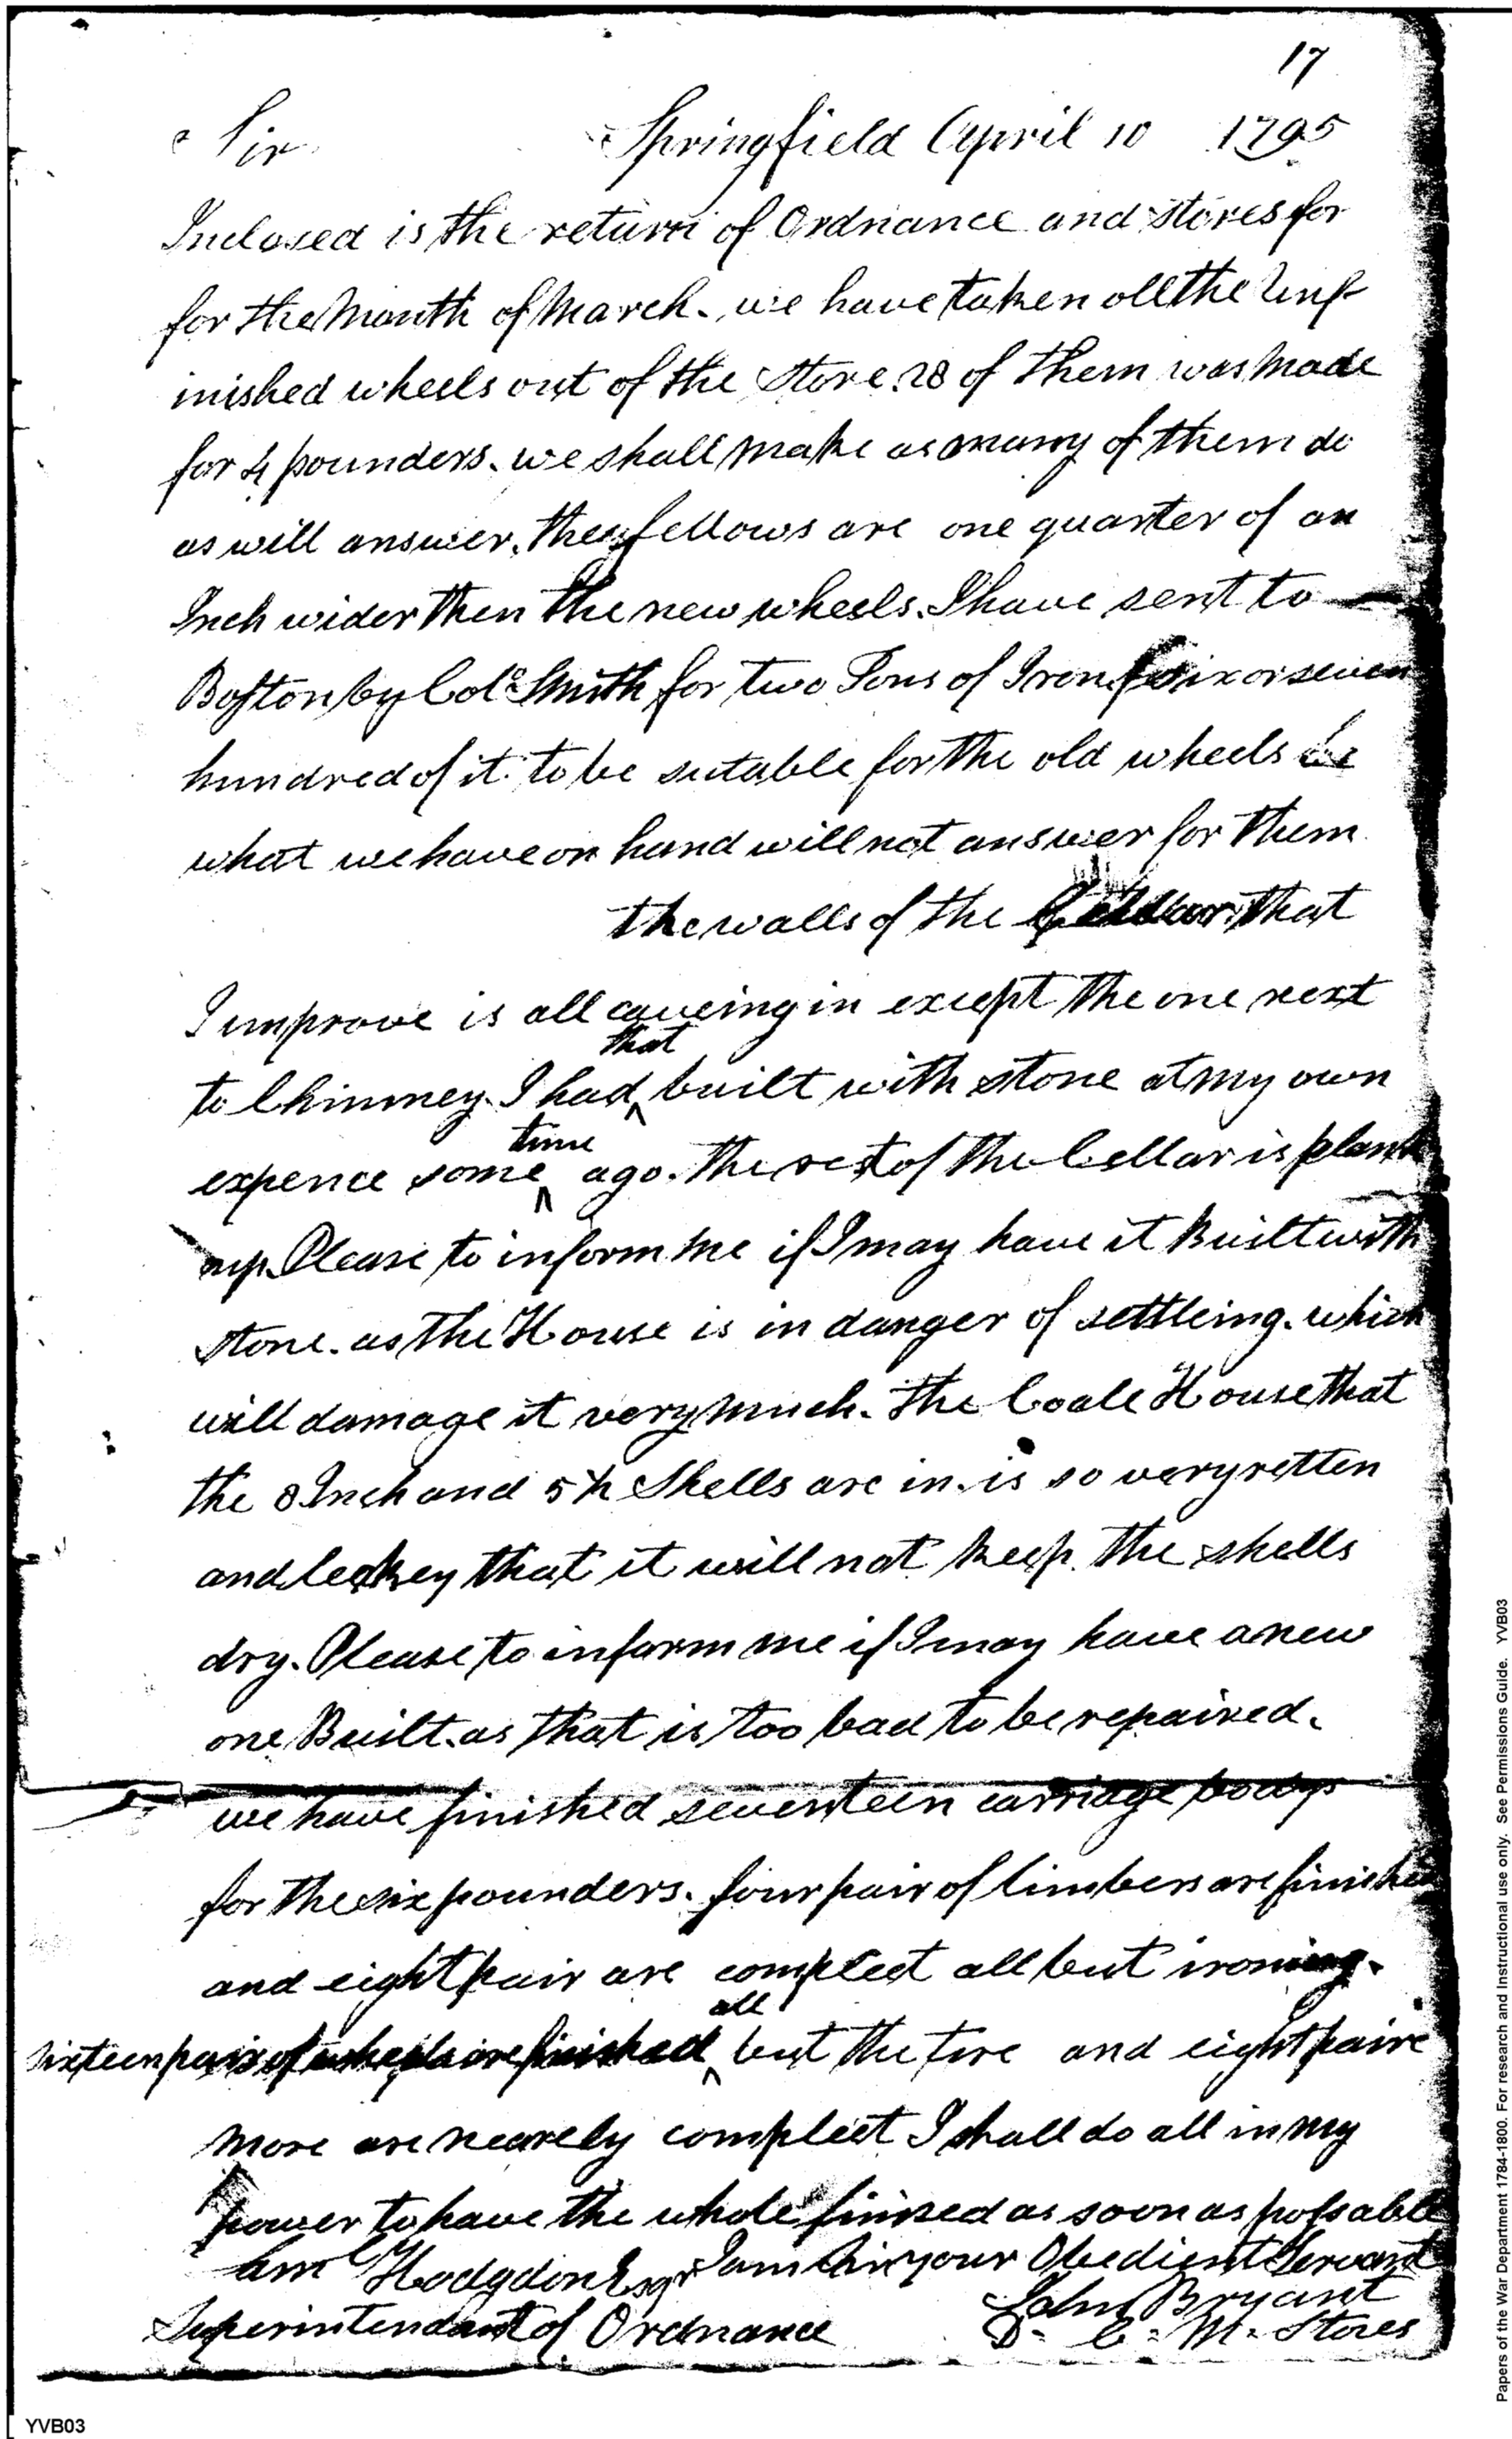 17
Sir Springfield April 10 1795
Inclosed is the return of Ordnance and stores for
for the Month of March. we have taken all the unf-
inished wheels out of the Store. 28 of them was Made
for 4 pounders. we shall make as many of them do
as will answer. the fellows are one quarter of an
Inch wider then the new wheels. I have sent to
Boston by Colº Smith for two Tons of Iron six or seven
hundred of it to be sutable for the old wheels
what we have on hand will not answer for them
the walls of the Cellar that
I improve is all caveing in except the one next
to Chimney. I had that built with stone at my own
expence some time ago. the rest of the Cellar is plank
up. Please to inform me if I may have it Built with
stone. as the House is in danger of settleing. which
will damage it very much. The Coale House that
the 8 Inch and 5½ Shells are in. is so very rotten
and leakey that it will not keep the shells
dry. Please to inform me if I may have a new
one Built. as that is too bad to be repaired.
we have finished seventeen carriage bodys
for the six pounders. four pair of limbers are finished
and eight pair are compleet all but ironing.
sixteen pair of wheels are finished all but the tire and eight paire
more are nearely compleet I shall do all in my
power to have the whole finised as soon as possable
Saml Hodgdon Esqr I am Sir your Obedient Servant
John Bryant
Superintendant of Ordnance D- C- M- Stores
YVB03
Papers of the War Department 1784-1800. For research and Instructional use only. See Permissions Guide. YVB03